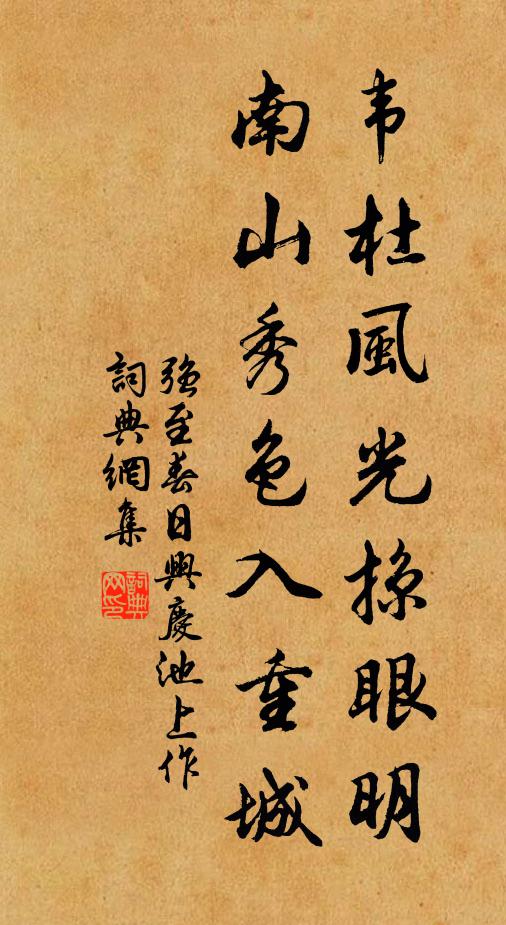 韦杜風光掠眼明
南山秀色入重城
强至春日興慶池上作
詞典網集
詞典网印